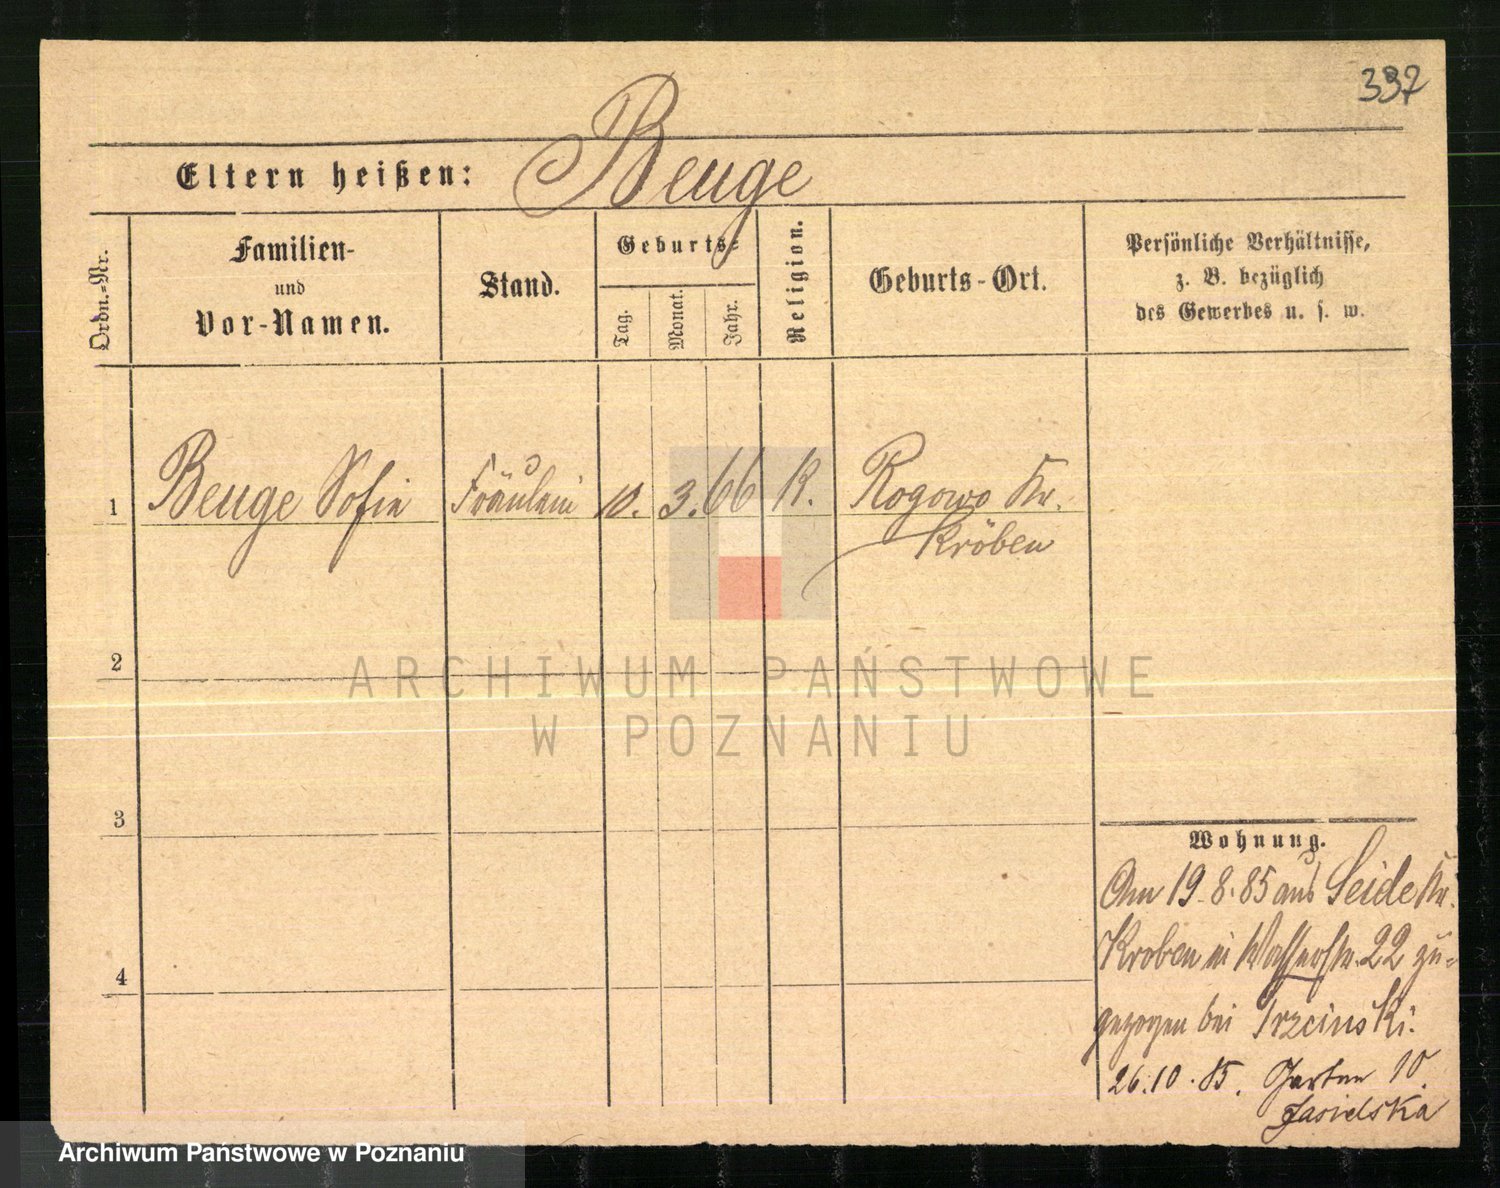 337
Beuge
Eltern heißen:
Ordn.-Nr.
Familien-
und
Vor-Namen.
Stand.
Geburts-
Tag.
Monat.
Jahr.
Religion.
Geburts-Ort.
Persönliche Verhältnisse,
z. B. bezüglich
des Gewerbes u. s. w.
1 Beuge Sofie Fräulein 10. 3. 66 K. Rogowo Kr.
Kröben
2
ARCHIWUM PAŃSTWOWE
W POZNANIU
3
Wohnung.
Am 19.8.85 aus Seide Kr.
Kroben in Wasserstr. 22 zu-
gezogen bei Trzcinski.
4
26.10.85. Garten 10.
Jasielska
Archiwum Państwowe w Poznaniu